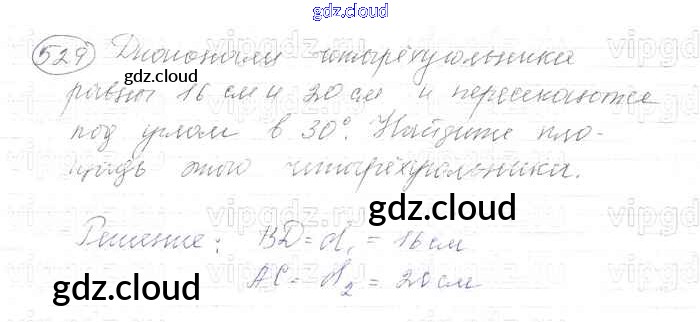 gdz.cloud
529 Диагонали четырёхугольника
gdz.cloud
равны 16 см и 20 см и пересекаются
под углом в 30°. Найдите пло-
щадь этого четырёхугольника.
gdz.cloud
Решение: BD = d₁ = 16 см
AC = d₂ = 20 см
gdz.cloud